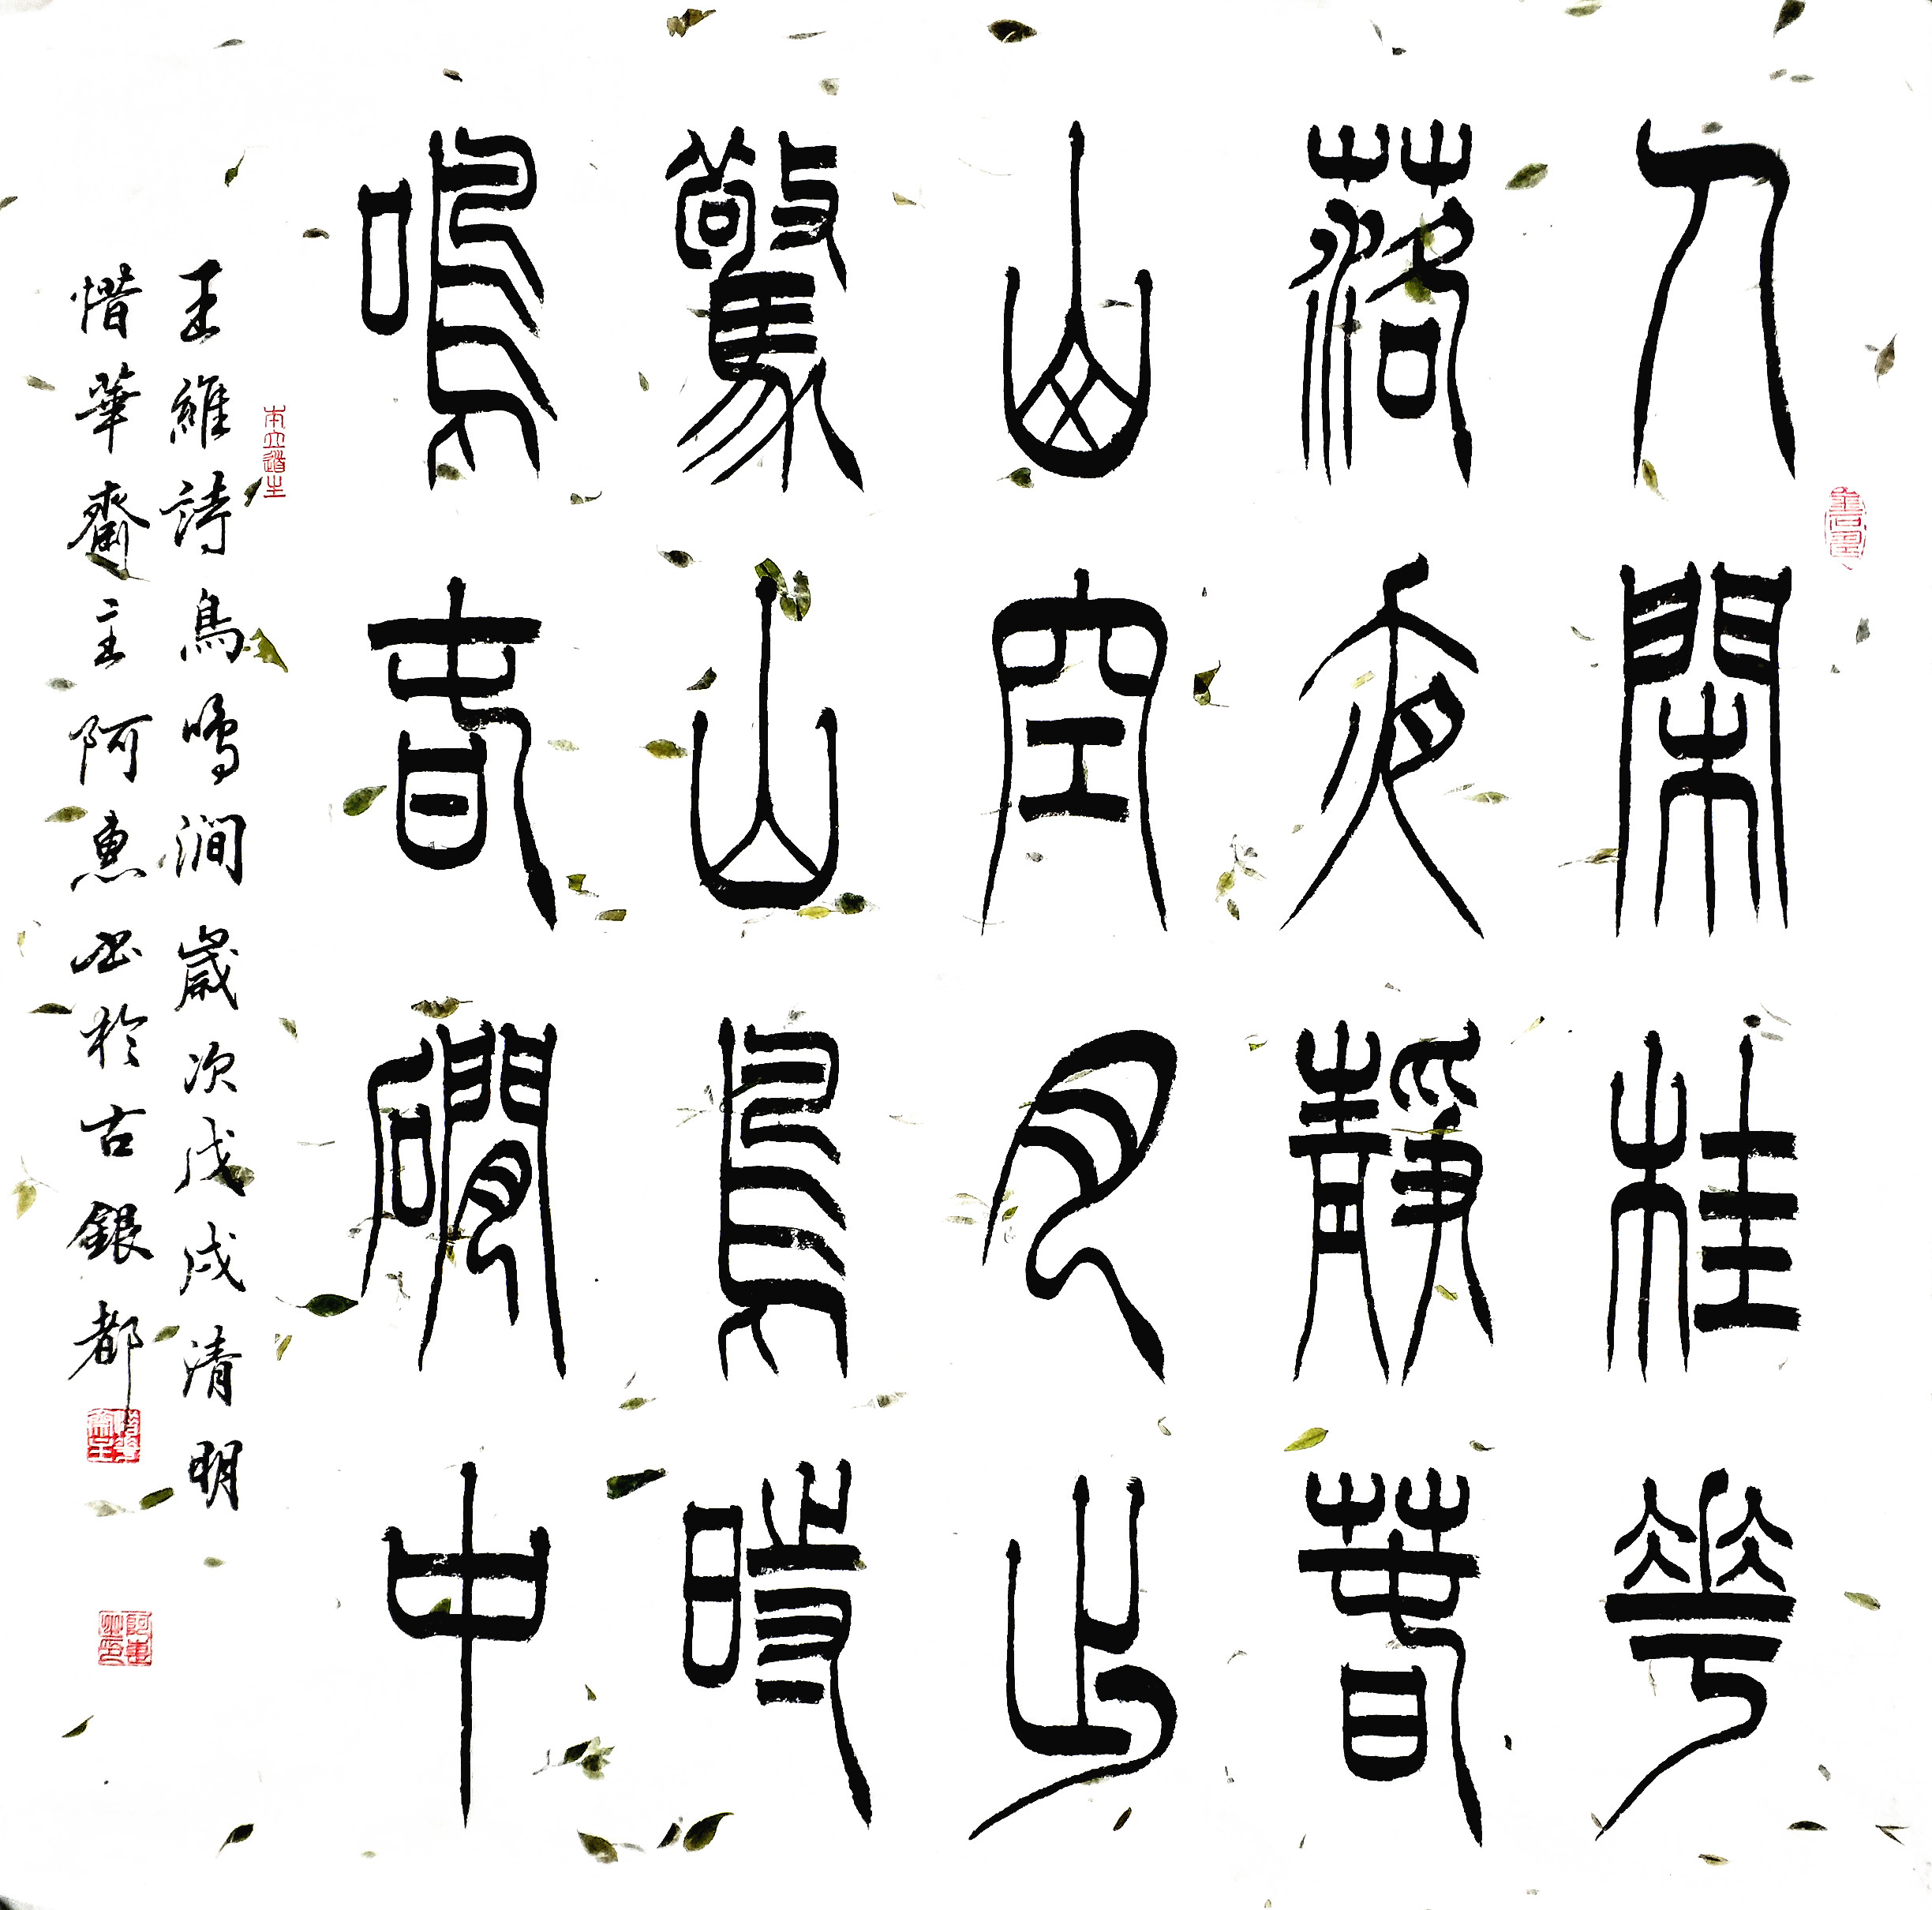 人閑桂花
落夜靜春
山空月出
驚山鳥時
鳴春磵中
本立道生
王維詩鳥鳴澗歲次戊戌清明
惜華齋主阿惠书於古銀都